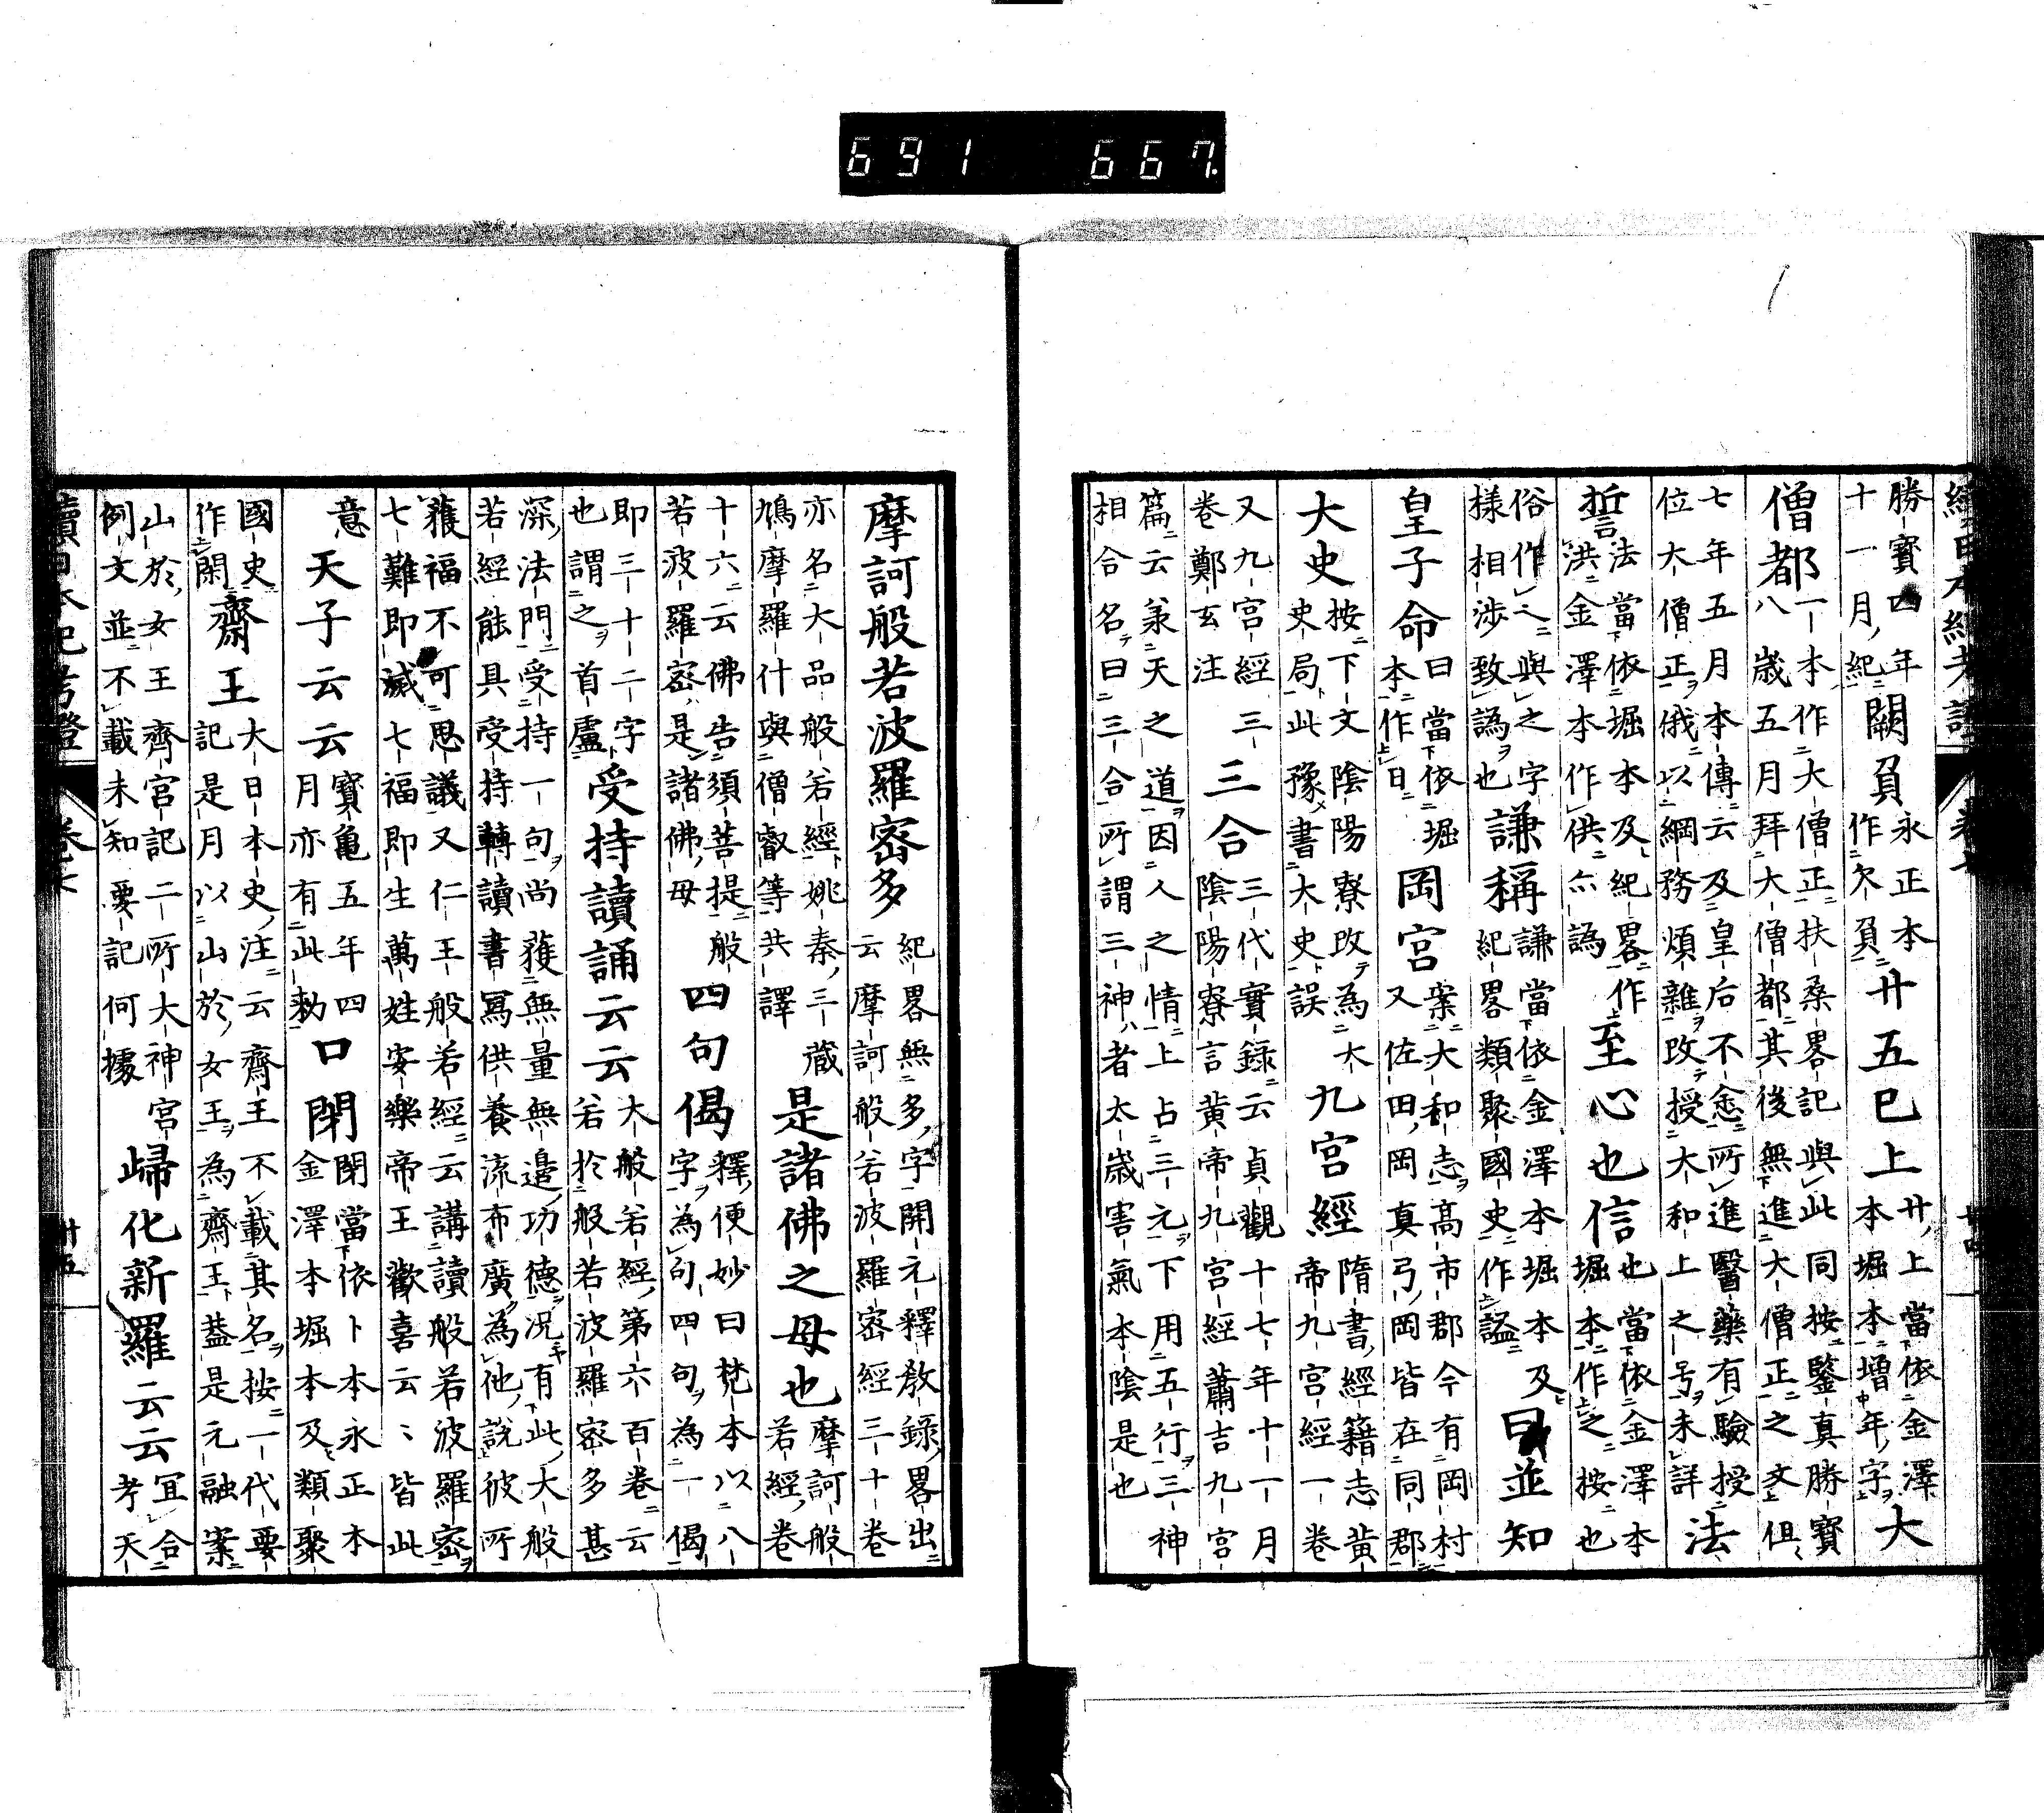 續日本紀考證 卷七 廿四
勝寶四年十一月紀闕負永正本作欠負廿五巳上廾上當依金澤本堀本增年字大
僧都一本作大僧正扶桑畧記與此同按鑒真勝寶八歲五月拜大僧都其後無進大僧正之文但
七年五月本傳云及皇后不悆所進醫藥有驗授位大僧正俄以綱務煩雜改授大和上之号未詳法
誓法當依堀本及紀畧作洪金澤本作供亦譌至心也信也當依金澤本堀本作之按也
俗作〻與之字樣相涉致譌也謙稱謙當依金澤本堀本及紀畧類聚國史作謐曰並知
皇子命曰當依堀本作日岡宮案大和志高市郡今有岡村又佐田岡真弓岡皆在同郡
大史按下文陰陽寮改為大史局此豫書大史誤九宮經隋書經籍志黃帝九宮經一卷
又九宮經三卷鄭玄注三合三代實錄云貞觀十七年十一月陰陽寮言黃帝九宮經蕭吉九宮
篇云承天之道因人之情上占三元下用五行三神相合名曰三合所謂三神者太歲害氣本陰是也
摩訶般若波羅密多紀畧無多字開元釋教錄畧出云摩訶般若波羅密經三十卷
亦名大品般若經姚秦三藏鳩摩羅什與僧叡等共譯是諸佛之母也摩訶般若經卷
十六云佛告須菩提般若波羅密是諸佛母四句偈釋便妙曰梵本以八字為句四句為一偈
即三十二字也謂之首盧受持讀誦云云大般若經第六百卷云若於般若波羅密多甚
深法門受持一句尚獲無量無邊功德況有此大般若經能具受持轉讀書寫供養流布廣為他說彼所
獲福不可思議又仁王般若經云講讀般若波羅密七難即滅七福即生萬姓安樂帝王歡喜云〻皆此
意天子云云寶亀五年四月亦有此勅口閇閇當依卜本永正本金澤本堀本及類聚
國史作閑齋王大日本史注云齋王不載其名按一代要記是月以山於女王為齋王蓋是元融案
山於女王齊宮記二所大神宮例文並不載未知要記何據歸化新羅云云宜合考天
續日本紀考證 卷七 廿五